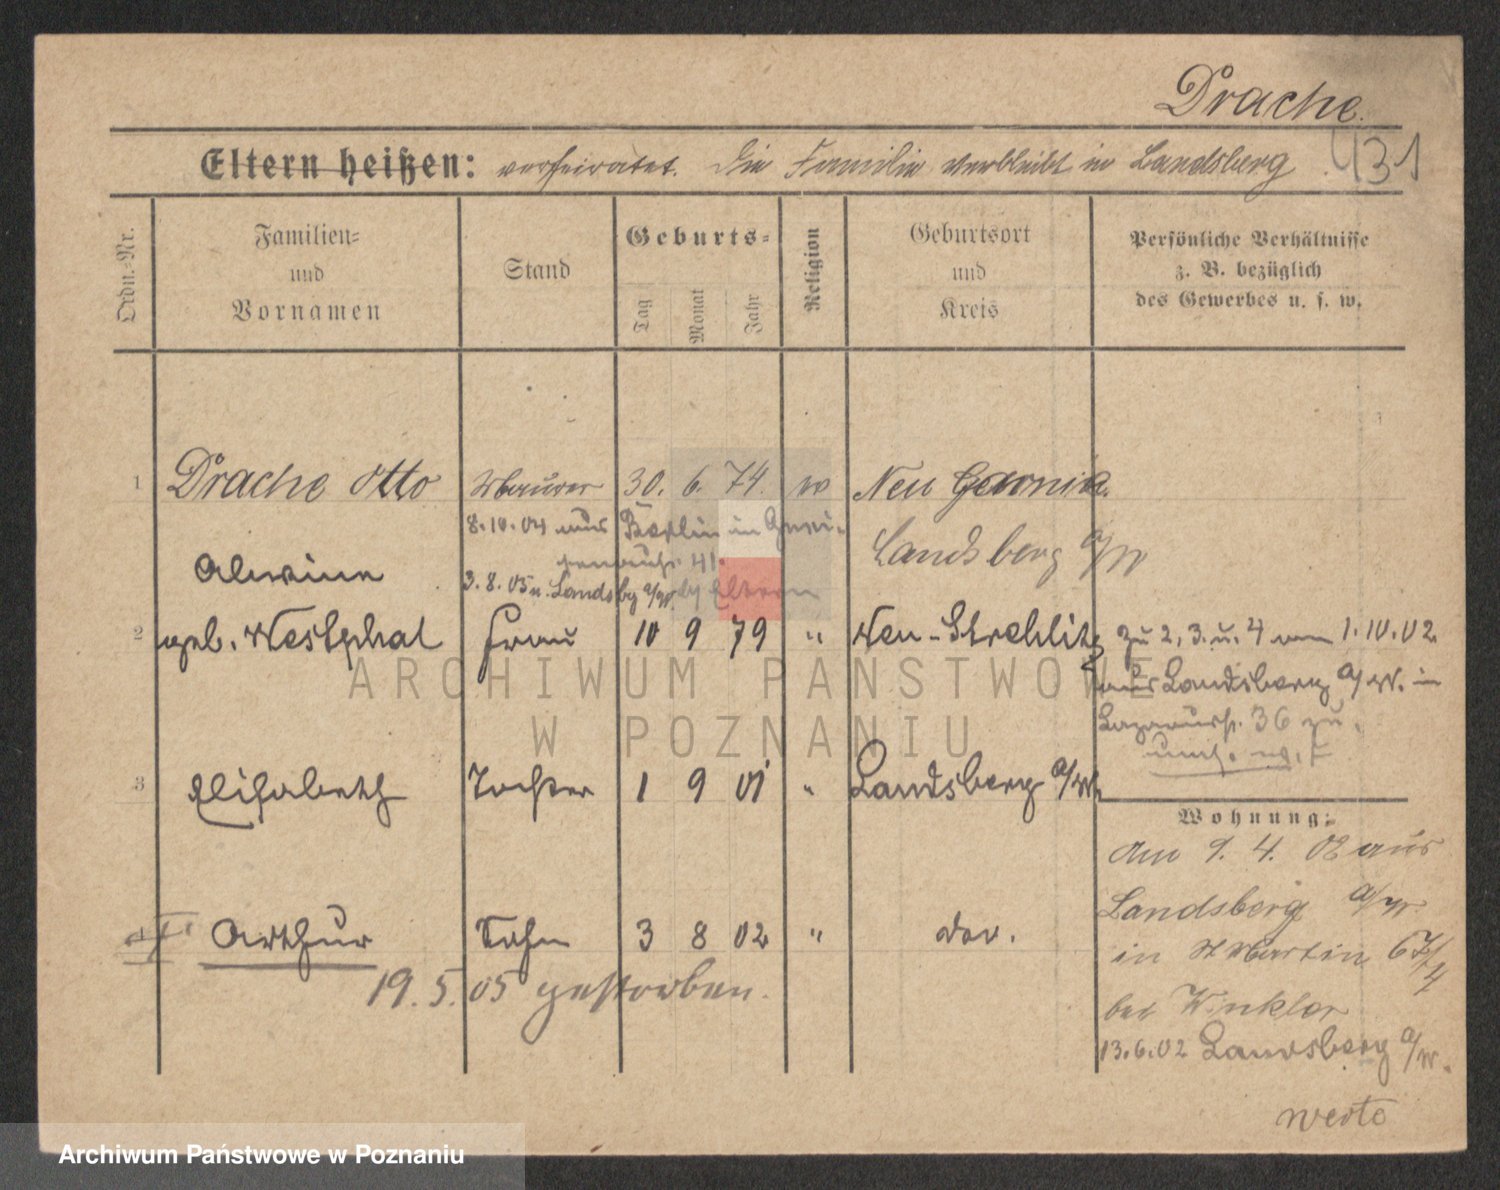 Drache.
431
Eltern heißen: verheiratet. Die Familie verbleibt in Landsberg
Ordn.-Nr.
Familien- und Vornamen
Stand
Geburts-
Tag
Monat
Jahr
Religion
Geburtsort und Kreis
Persönliche Verhältnisse
z. B. bezüglich
des Gewerbes u. s. w.
1 Drache Otto Maurer 30. 6. 74. Neu
8.10.04 aus Berlin in
41.
Landsberg a/W
Alwine
3.8.05 n. Landsbg a/W. Eltern
2 geb. Westphal Frau 10 9 79 " Neu-Strehlitz
zu 2, 3. u. 4 vom 1.10.02
aus Landsberg a/W. in
36 zu.
3 Elisabeth Tochter 1 9 01 " Landsberg a/W.
Wohnung:
Am 9. 4. 02 aus
Landsberg a/W.
4 Arthur Sohn 3 8 02 " do.
in St Martin 67/4
19. 5. 05 gestorben.
bei Winkler
13.6.02 Landsberg a/W.
verte
ARCHIWUM PAŃSTWOWE
W POZNANIU
Archiwum Państwowe w Poznaniu